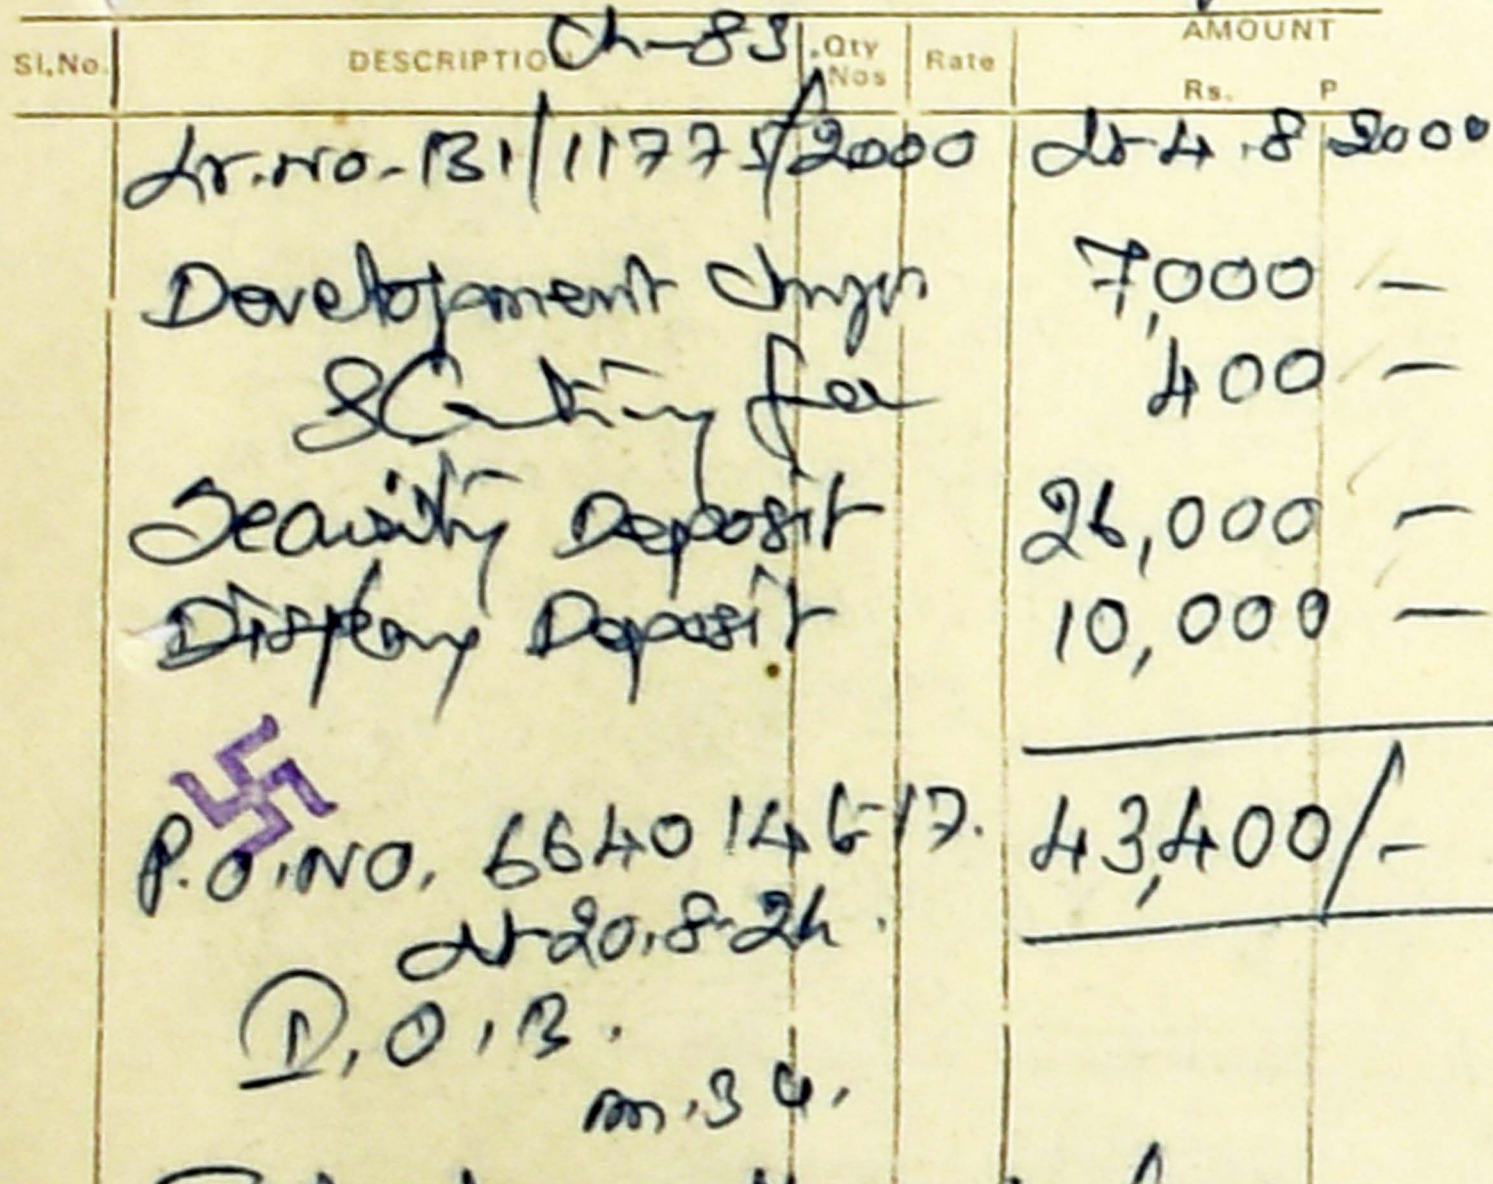 Ch-83
Sl.No. DESCRIPTION Qty Nos Rate AMOUNT Rs. P
Lr.No-B1/11775/2000 dt 4.8 2000
Development 7,000 —
& fee 400 —
Security Deposit 26,000 —
Display Deposit 10,000 —
P.O.NO. 664014 6-17. 43,400/-
dt 20.8.
I.O.B.